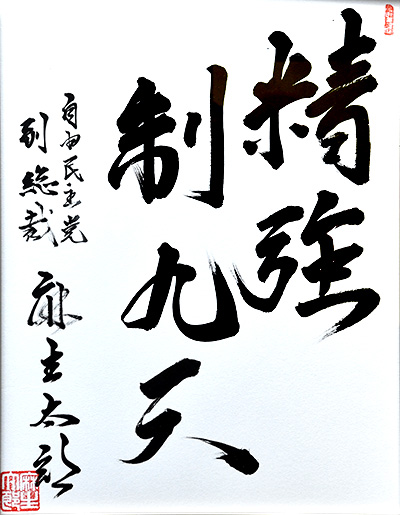 精強
制九天
自由民主党
副総裁 麻生太郎